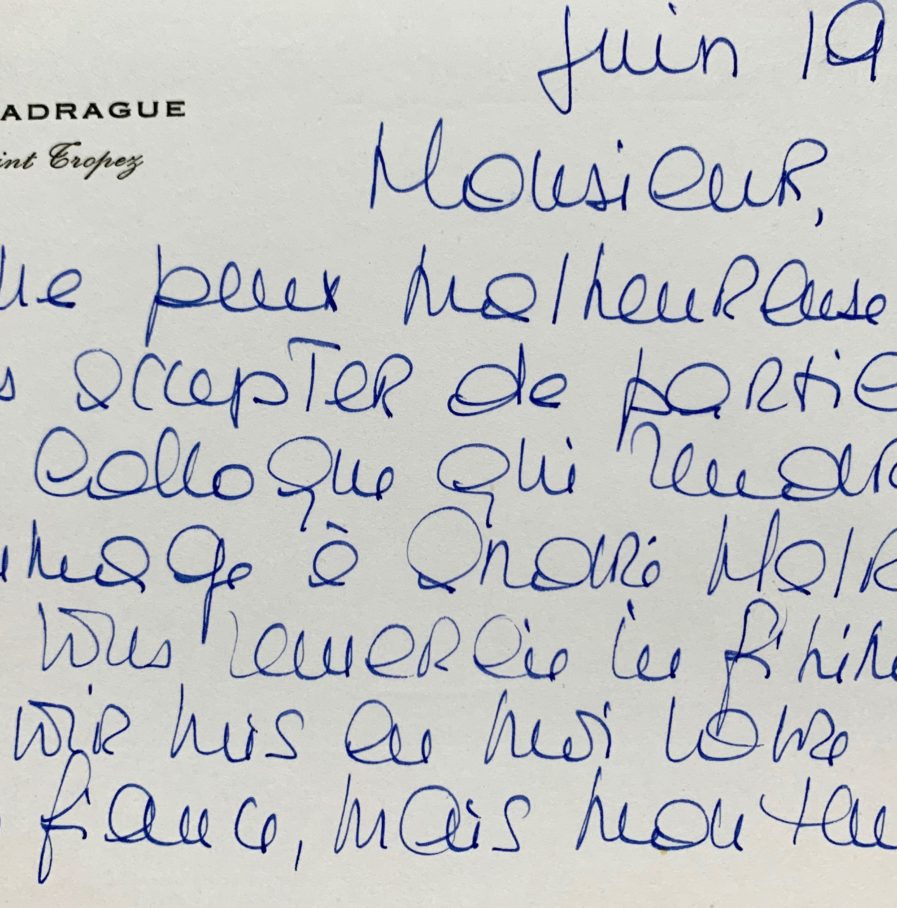 Juin 19
ADRAGUE
int Tropez
Monsieur,
ne peux malheureuse
s accepter de partic
Colloque qui rendr
mmage à André Malr
vous remercie infinim
voir mis en moi votre
fiance, mais mon tem